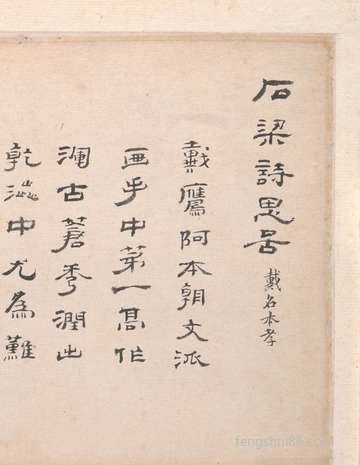 石梁詩思啚 戴名本孝
戴鷹阿本朝文派
画手中第一高作
古蒼秀潤出
乾澁中尤為難
fengshui86.com